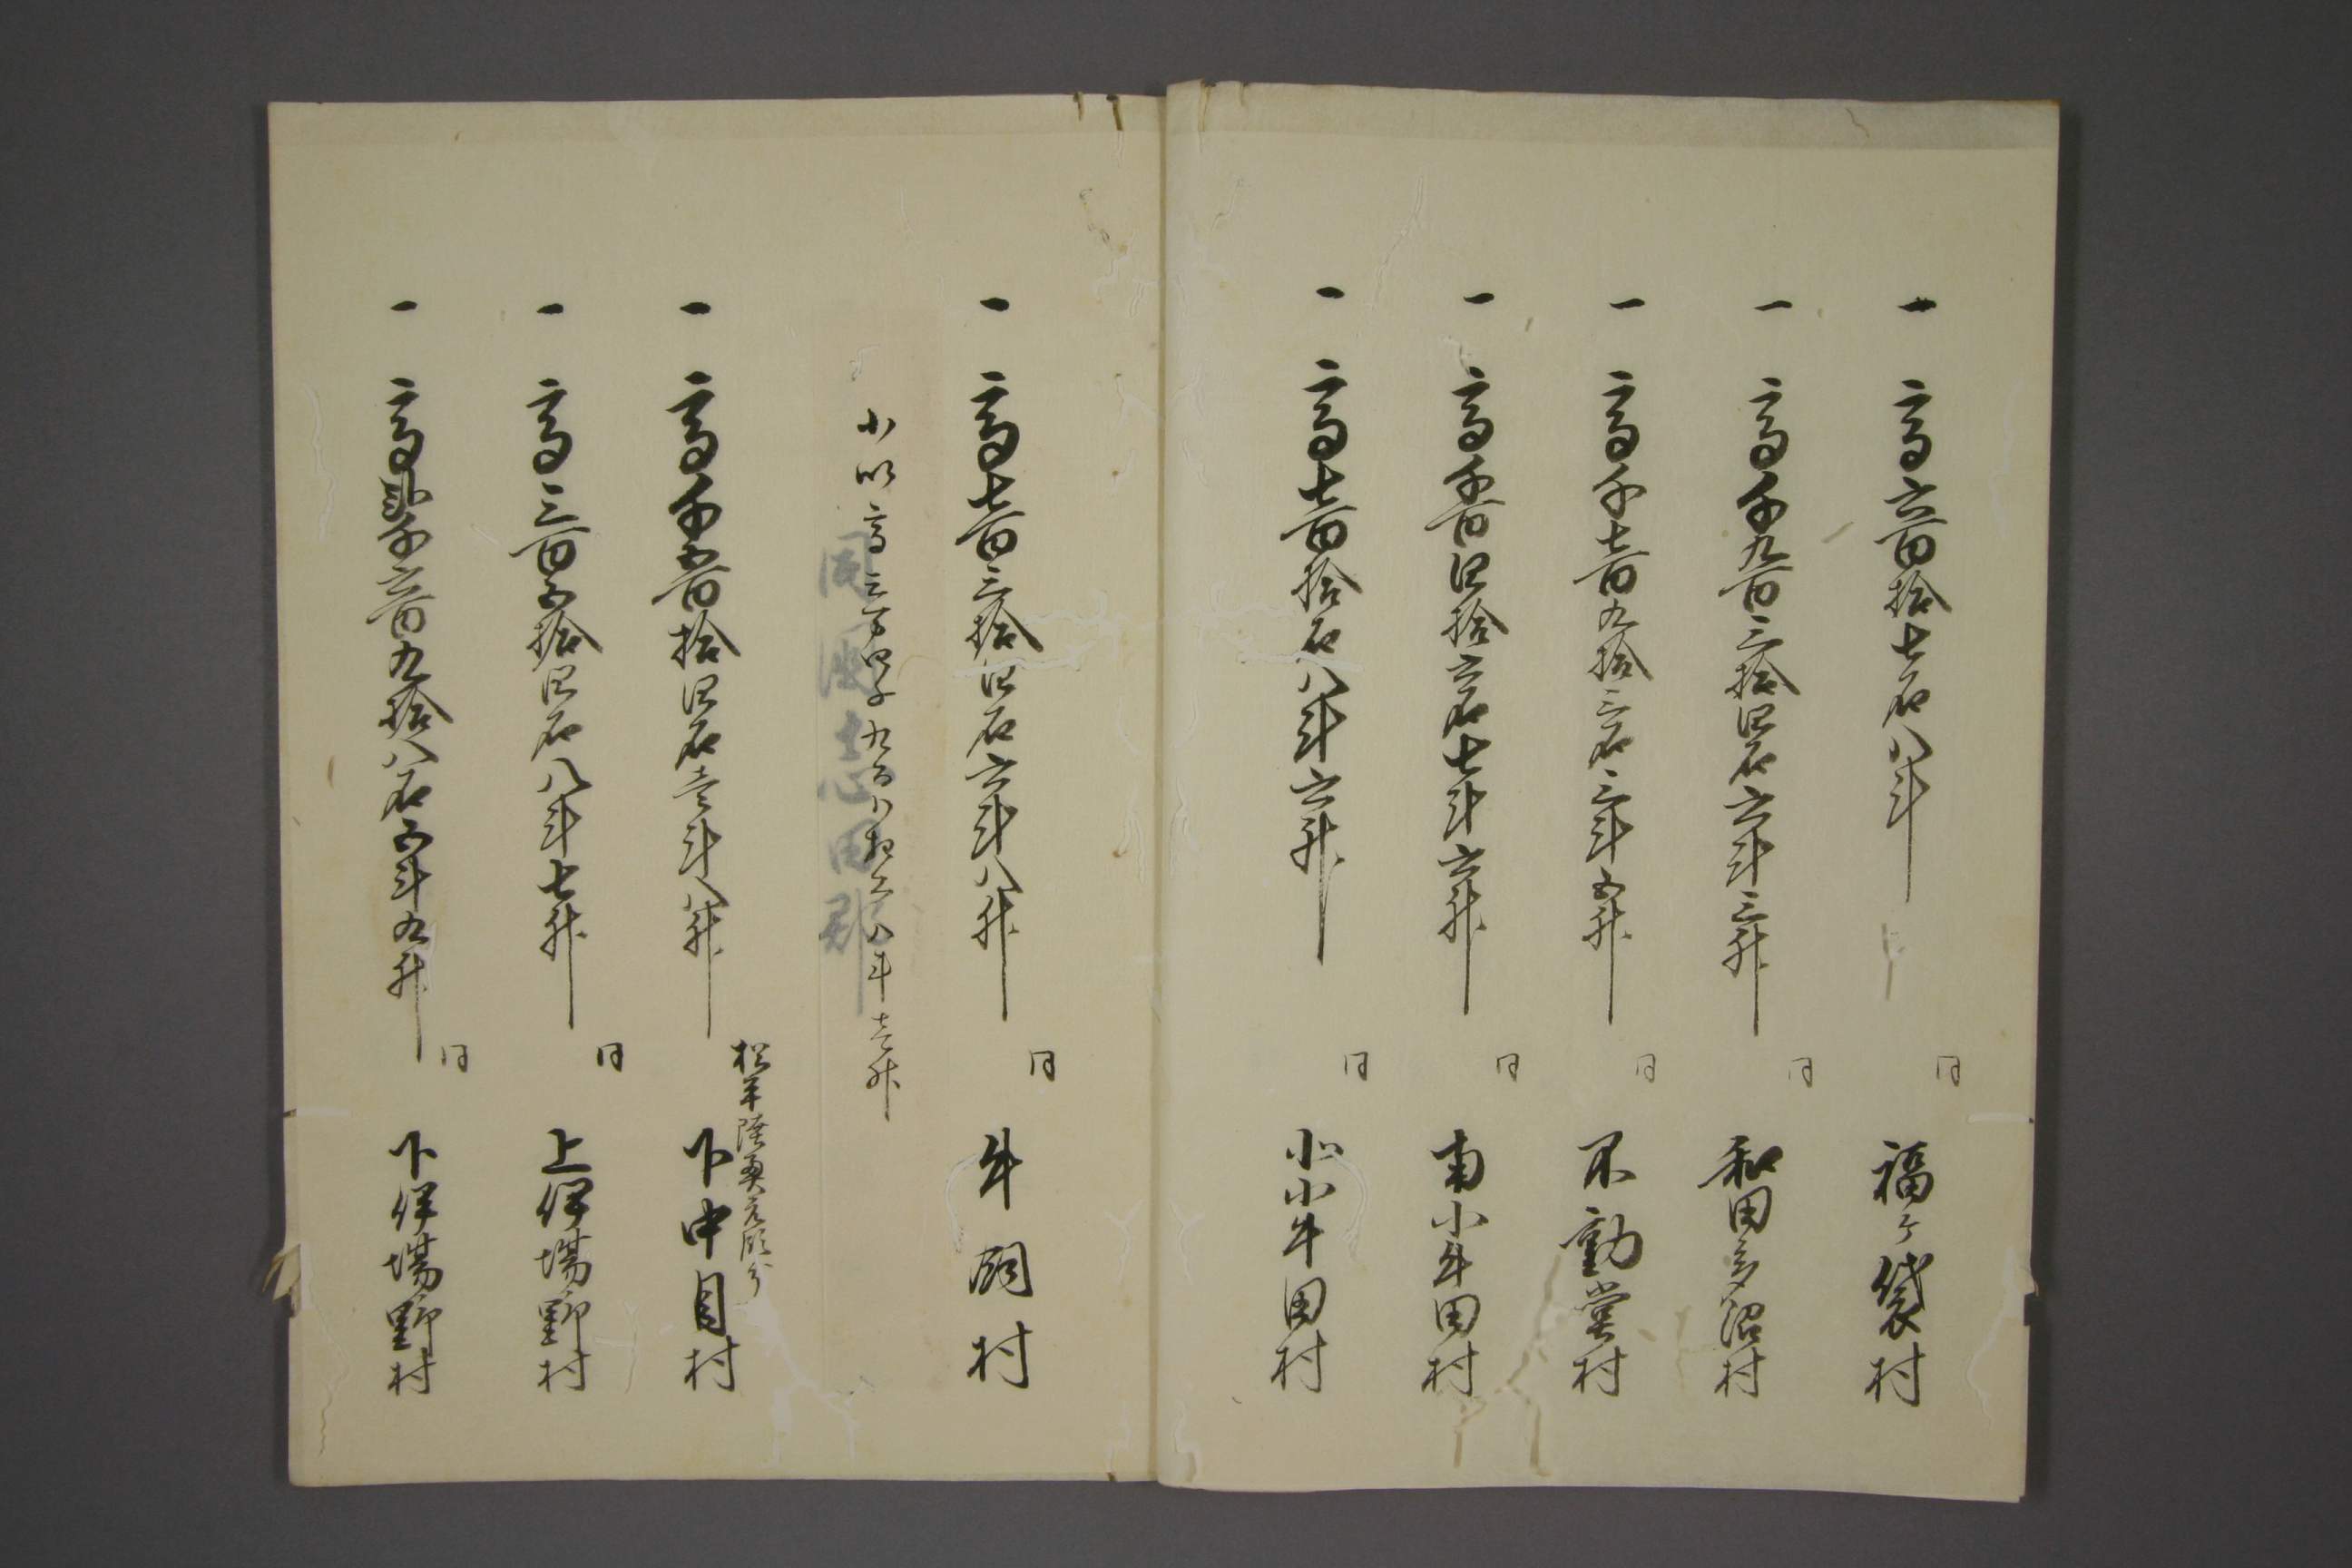 一 高六百拾七石八斗
同
福ケ袋村
一 高千九百三拾四石六斗三升
同
和田多沼村
一 高千七百九拾三石三斗五升
同
不動堂村
一 高千百四拾六石七斗六升
同
南小牛田村
一 高七百拾石八斗六升
同
北小牛田村
一 高七百三拾四石六斗八升
同
牛飼村
小以高三万四千九百八拾六石八斗壱升
同国志田郡
一 高千五百拾四石壱斗八升
松平陸奥元領分
下中目村
一 高三百五拾四石八斗七升
同
上伊場野村
一 高弐千六百九拾八石五斗九升
同
下伊場野村